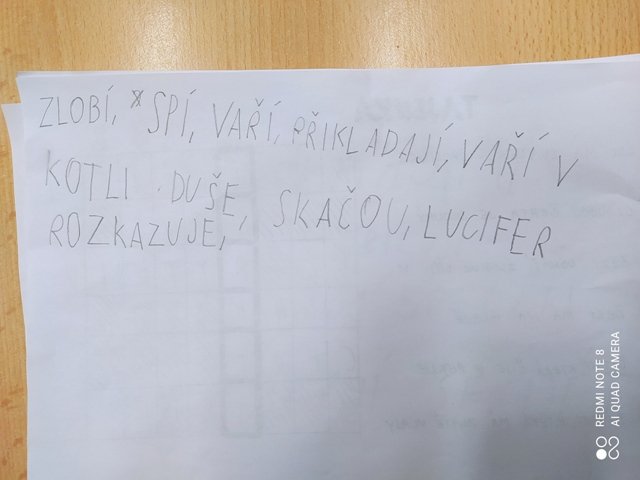 ZLOBÍ, SPÍ, VAŘÍ, PŘIKLADAJÍ, VAŘÍ V
KOTLI DUŠE, SKAČOU, LUCIFER
ROZKAZUJE,
REDMI NOTE 8
AI QUAD CAMERA